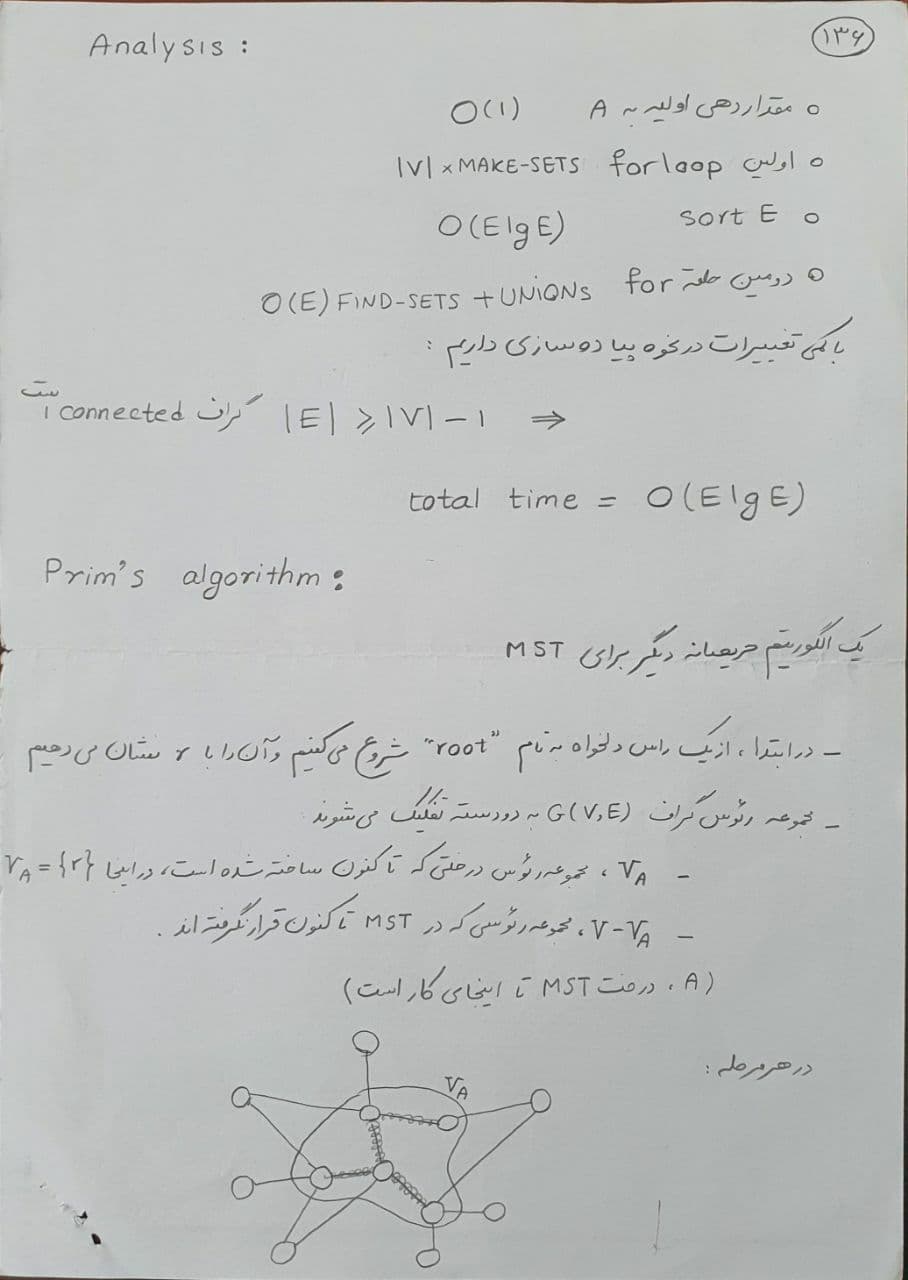 ۱۳۶
Analysis :
o مقداردهی اولیه به A O(1)
o اولین for loop |V| × MAKE-SETS
o sort E O(E lg E)
o دومین حلقهٔ for O(E) FIND-SETS + UNIONS
با کمی تغییرات در نحوه پیاده سازی داریم :
گراف connected است |E| ⩾ |V| - 1 ⇒
total time = O(E lg E)
Prim's algorithm :
یک الگوریتم حریصانه دیگر برای MST
- در ابتدا ، از یک راس دلخواه به نام "root" شروع می کنیم و آن را با r نشان می دهیم
- مجموعه رئوس گراف G(V,E) به دو دسته تفکیک می شوند
- V_A ، مجموعه رئوس درختی که تا کنون ساخته شده است، در اینجا V_A = {r}
- V-V_A ، مجموعه رئوسی که در MST تا کنون قرار نگرفته اند .
(A ، درخت MST تا اینجای کار است)
در هر مرحله :
V_A